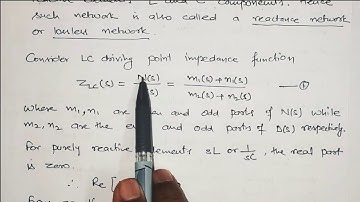 such network is also called a reactance network
or lossless network.
Consider LC driving point impedance function
Z_LC(s) = N(s)/(s) = m₁(s)+n₁(s) / m₂(s)+n₂(s) — ①
Where m₁, n₁ are and odd parts of N(s) while
m₂, n₂ are the and odd parts of D(s) respectively.
For purely reactive elements sL or 1/sC, the real part
is zero.
∴ Re [